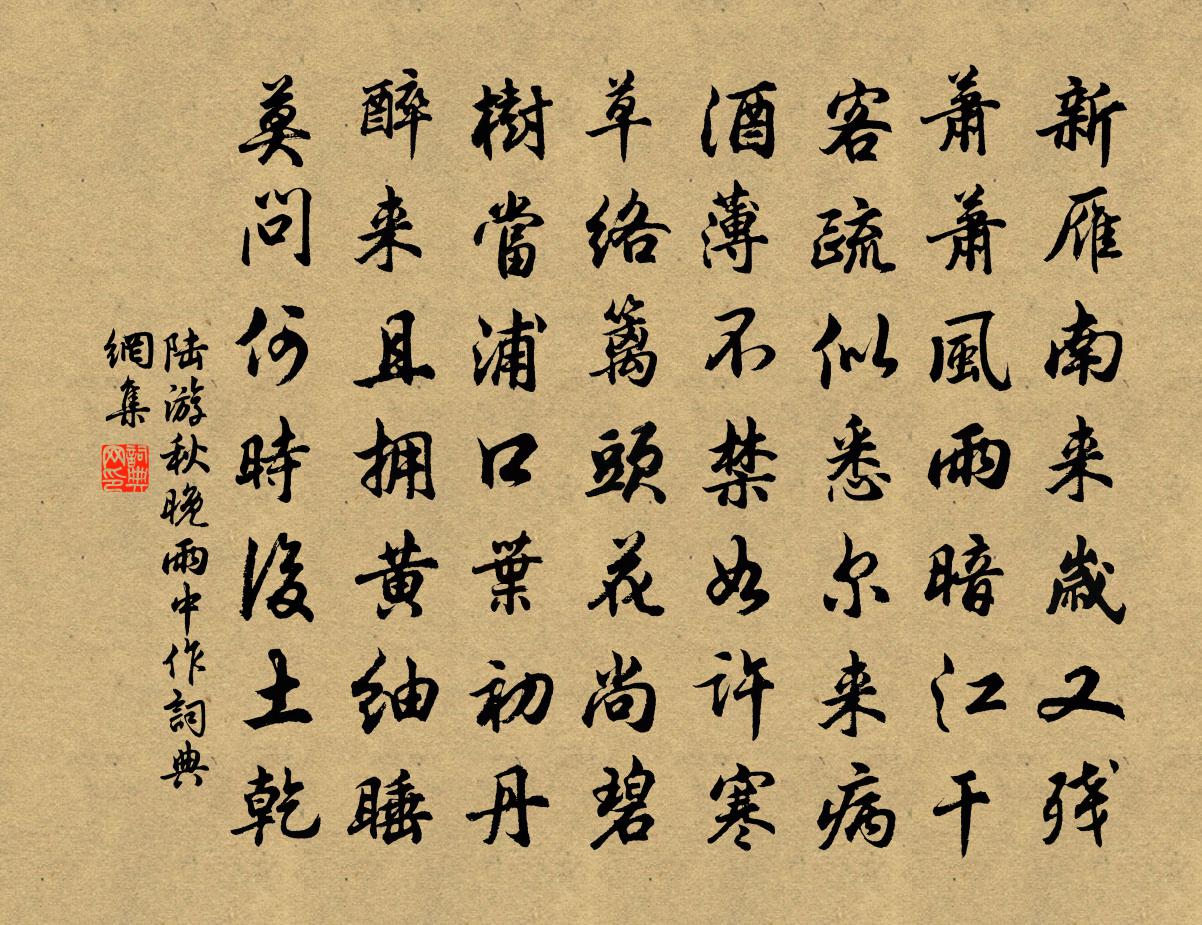 新雁南来歲又残
蕭蕭風雨暗江干
客疏似悉尔来病
酒薄不禁如許寒
草絡籬頭花尚碧
樹當浦口葉初丹
醉来且拥黄紬睡
莫問何時後土乾
陆游秋晚雨中作詞典
網集
詞典网印